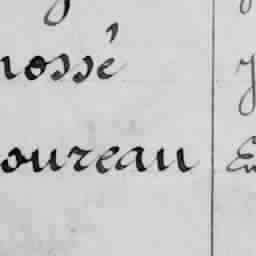 nossé
oureau